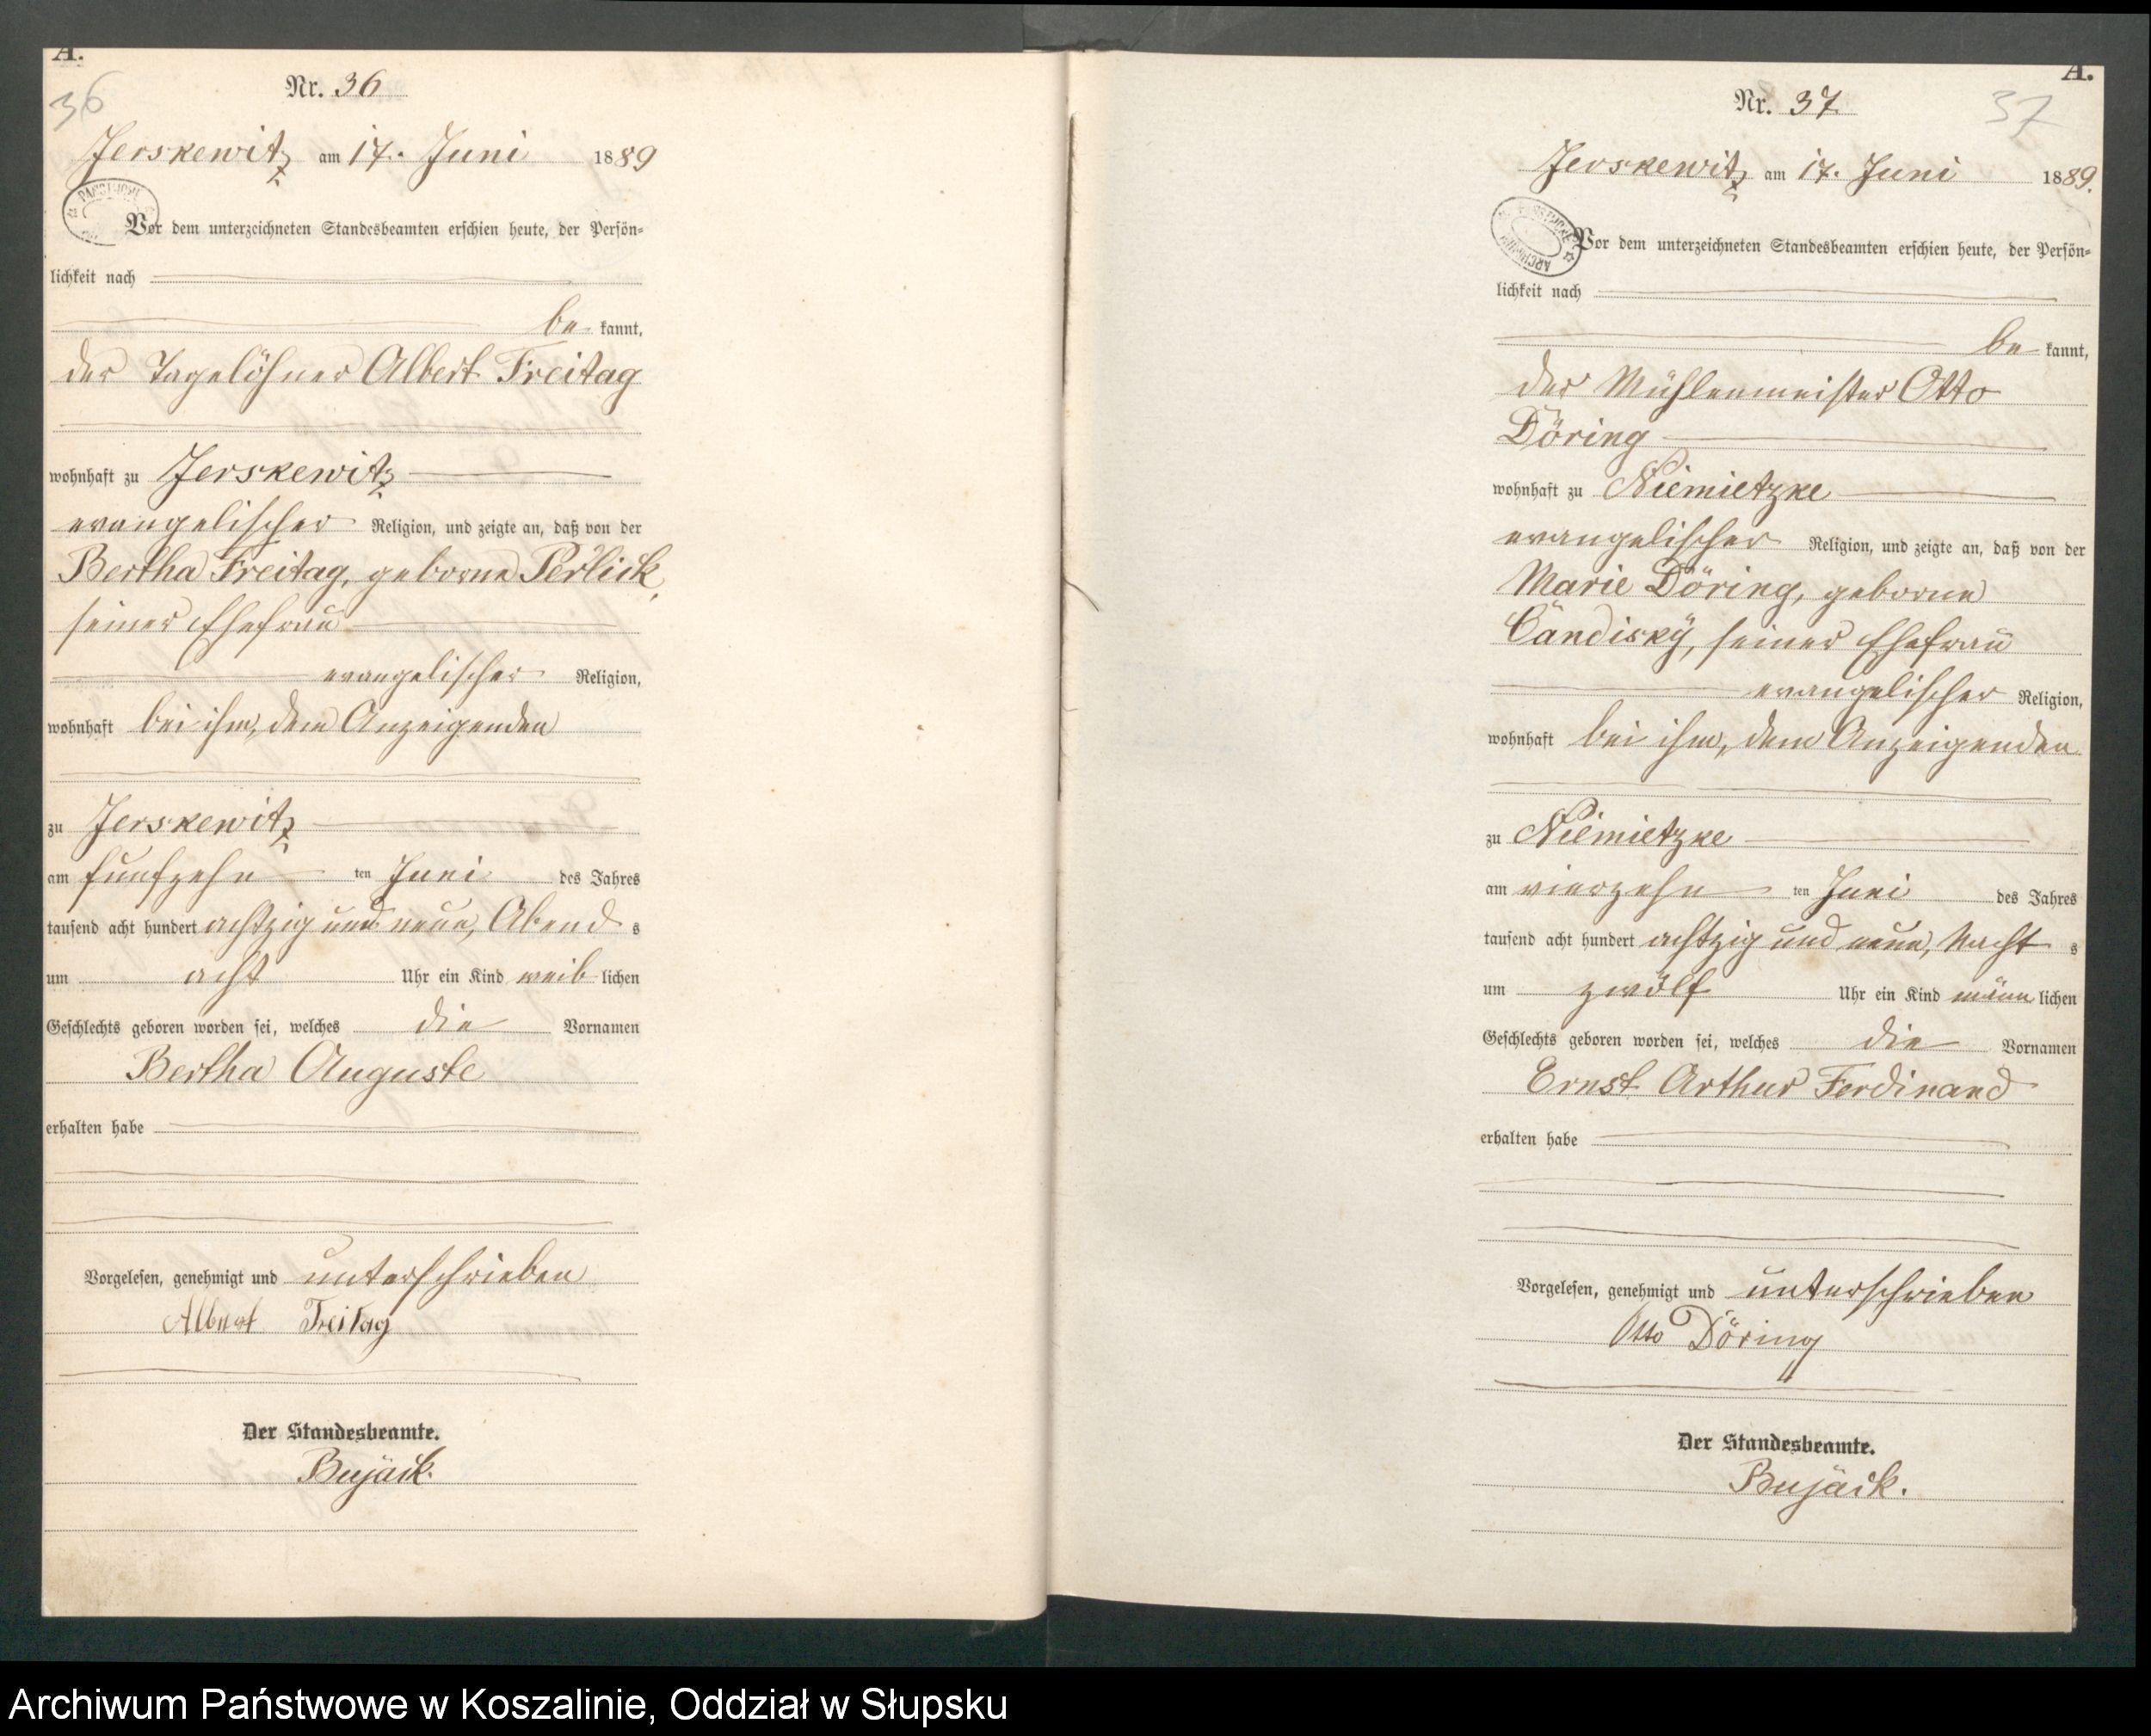 A.
36
Nr. 36
Jerskewitz am 17. Juni 1889
Vor dem unterzeichneten Standesbeamten erschien heute, der Persön-
lichkeit nach
be kannt,
der Tagelöhner Albert Freitag
wohnhaft zu Jerskewitz
evangelischer Religion, und zeigte an, daß von der
Bertha Freitag, geborne Perlick,
seiner Ehefrau
evangelischer Religion,
wohnhaft bei ihm, dem Anzeigenden
zu Jerskewitz
am fünfzehn ten Juni des Jahres
tausend acht hundert achtzig und neun, Abend s
um acht Uhr ein Kind weib lichen
Geschlechts geboren worden sei, welches die Vornamen
Bertha Auguste
erhalten habe
Vorgelesen, genehmigt und unterschrieben
Albert Freitag
Der Standesbeamte.
Bujäck.
A.
37
Nr. 37
Jerskewitz am 17. Juni 1889.
ARCHIWUM
Vor dem unterzeichneten Standesbeamten erschien heute, der Persön-
lichkeit nach
be kannt,
der Mühlenmeister Otto
Döring
wohnhaft zu Niemietzke
evangelischer Religion, und zeigte an, daß von der
Marie Döring, geborne
Cändisky, seiner Ehefrau
evangelischer Religion,
wohnhaft bei ihm, dem Anzeigenden
zu Niemietzke
am vierzehn ten Juni des Jahres
tausend acht hundert achtzig und neun, Nacht s
um zwölf Uhr ein Kind männ lichen
Geschlechts geboren worden sei, welches die Vornamen
Ernst Arthur Ferdinand
erhalten habe
Vorgelesen, genehmigt und unterschrieben
Otto Döring
Der Standesbeamte.
Bujäck.
Archiwum Państwowe w Koszalinie, Oddział w Słupsku